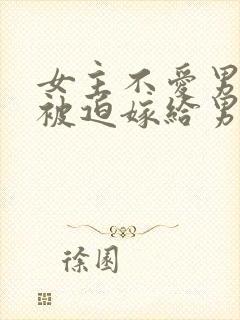 女主不愛男
被迫嫁給男
徐園